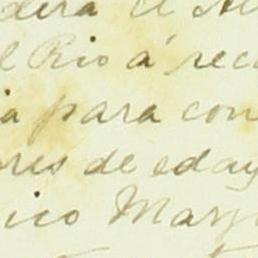 dera el
l Rio á rec
a para con
ores de eda y
ico Mar